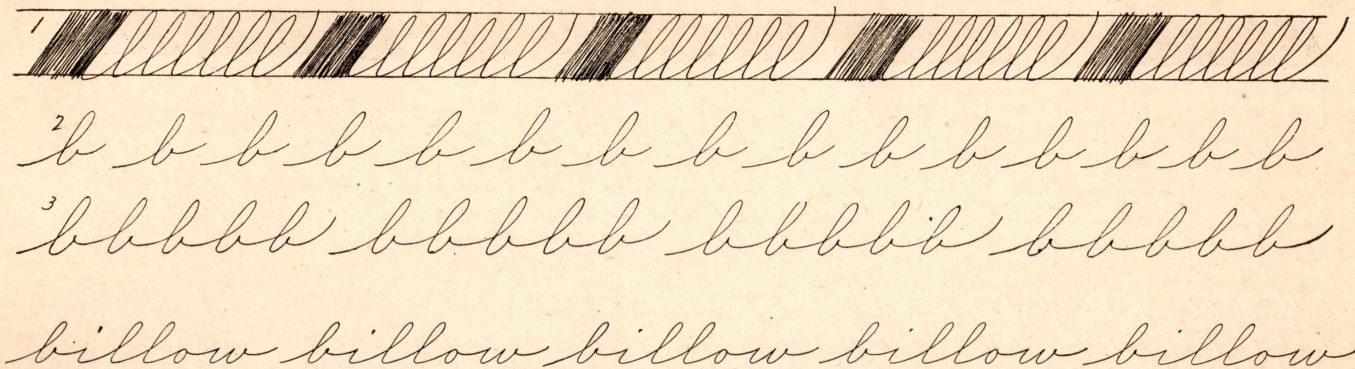 1
2 b b b b b b b b b b b b b b b
3 bbbbb bbbbb bbbbb bbbbb
billow billow billow billow billow